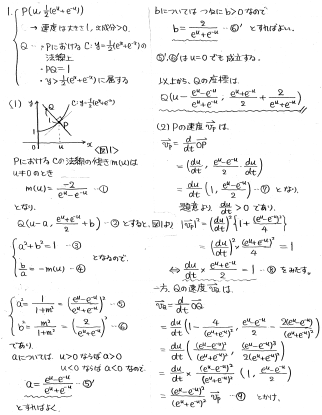 1. P(u, ½(eᵘ+e⁻ᵘ))
→ 速度は大きさ1, x成分>0.
Q … ・Pにおける C: y=½(eˣ+e⁻ˣ)の
法線上
・PQ=1
・y>½(eˣ+e⁻ˣ) に属する
(1) y C: y=½(eˣ+e⁻ˣ)
Q
P
1
u x <図1>
PにおけるCの法線の傾き m(u)は
u≠0のとき
m(u) = -2/(eᵘ-e⁻ᵘ) …①
となり,
Q(u-a, (eᵘ+e⁻ᵘ)/2 + b) …② とすると、図1より
{ a²+b²=1 …③
b/a = -m(u) …④ となるので,
{ a² = 1/(1+m²) = ((eᵘ-e⁻ᵘ)/(eᵘ+e⁻ᵘ))² …⑤
b² = m²/(1+m²) = (2/(eᵘ+e⁻ᵘ))² …⑥
であり,
aについては, u>0ならばa>0
u<0ならばa<0なので
a = (eᵘ-e⁻ᵘ)/(eᵘ+e⁻ᵘ) …⑤'
とすればよく,
bについては つねに b>0なので
b = 2/(eᵘ+e⁻ᵘ) …⑥' とすればよい.
⑤', ⑥'は u=0でも成立する.
以上から, Qの座標は,
Q(u - (eᵘ-e⁻ᵘ)/(eᵘ+e⁻ᵘ), (eᵘ+e⁻ᵘ)/2 + 2/(eᵘ+e⁻ᵘ))
(2) Pの速度 v⃗p は
v⃗p = d/dt OP⃗
= (du/dt, (eᵘ-e⁻ᵘ)/2 · du/dt)
= du/dt (1, (eᵘ-e⁻ᵘ)/2) …⑦ となり,
題意より du/dt > 0 であり,
|v⃗p|² = (du/dt)² {1 + (eᵘ-e⁻ᵘ)²/4}
= (du/dt)² × (eᵘ+e⁻ᵘ)²/4 = 1
⇔ du/dt × (eᵘ+e⁻ᵘ)/2 = 1 …⑧ をみたす.
一方, Qの速度 v⃗Q は,
v⃗Q = d/dt OQ⃗
= du/dt (1 - 4/(eᵘ+e⁻ᵘ)², (eᵘ-e⁻ᵘ)/2 - 2(eᵘ-e⁻ᵘ)/(eᵘ+e⁻ᵘ)²)
= du/dt ((eᵘ-e⁻ᵘ)²/(eᵘ+e⁻ᵘ)², (eᵘ-e⁻ᵘ)³/2(eᵘ+e⁻ᵘ)²)
= du/dt × (eᵘ-e⁻ᵘ)²/(eᵘ+e⁻ᵘ)² (1, (eᵘ-e⁻ᵘ)/2)
= (eᵘ-e⁻ᵘ)²/(eᵘ+e⁻ᵘ)² v⃗p …⑨ とかけ,